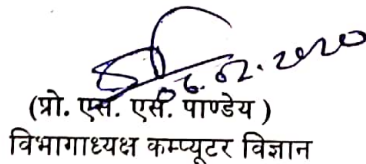 06.02.2020
(प्रो. एस. एस. पाण्डेय )
विभागाध्यक्ष कम्प्यूटर विज्ञान